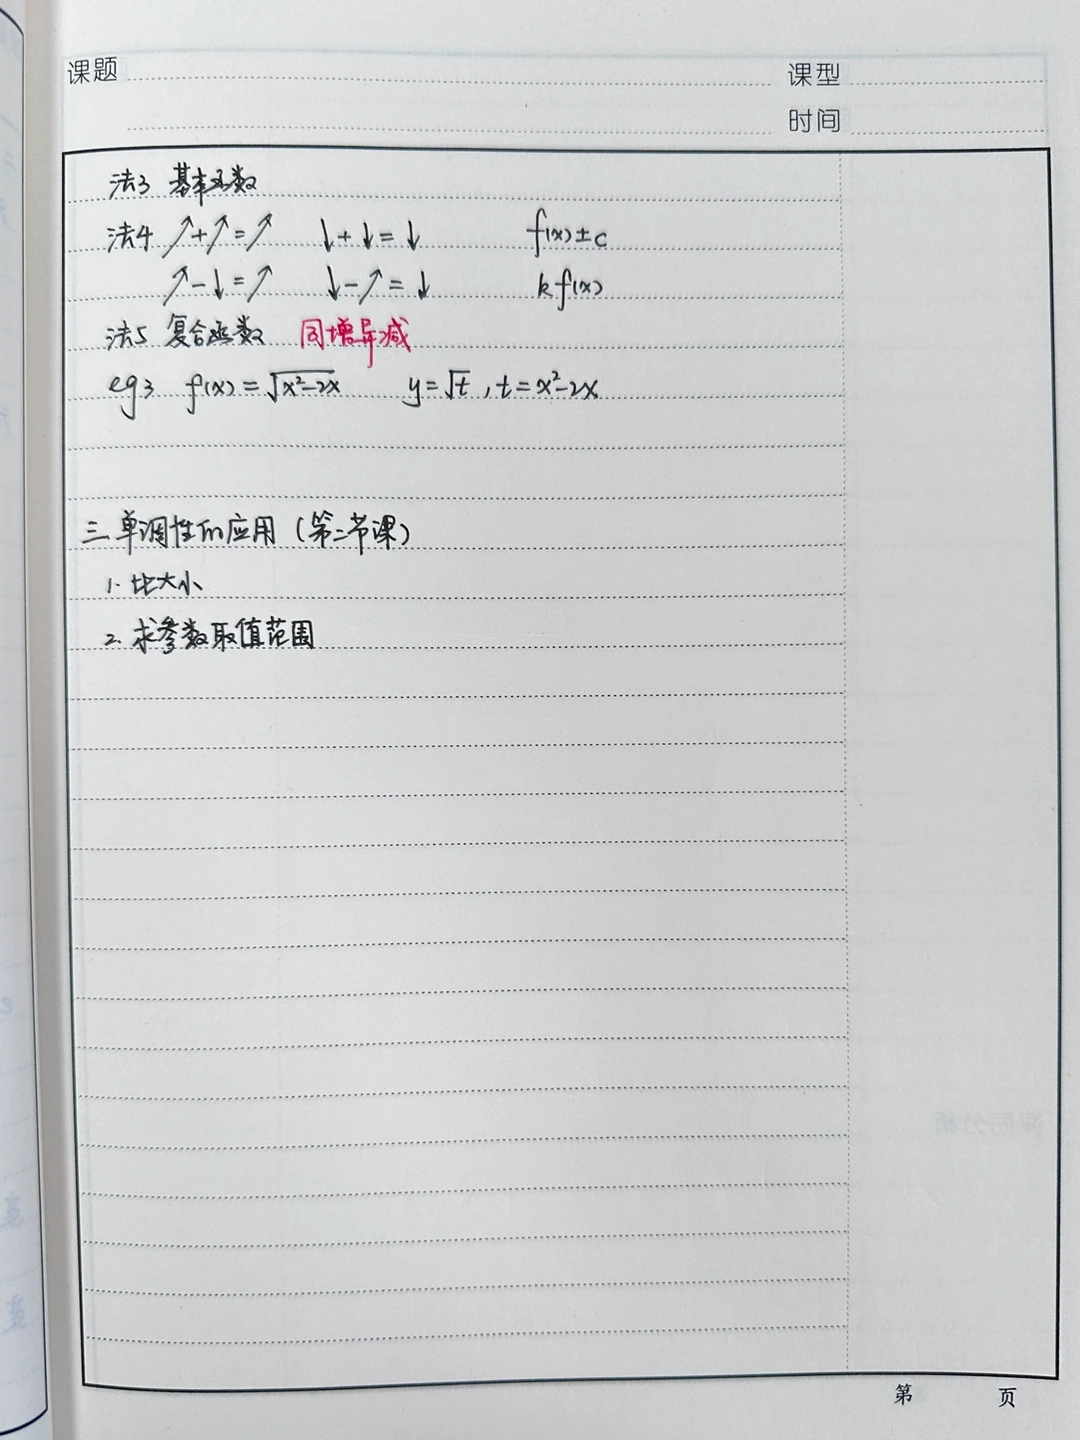 课题 课型
时间
法3 基本函数
法4 ↗+↗=↗ ↓+↓=↓ f(x)±c
↗-↓=↗ ↓-↗=↓ kf(x)
法5 复合函数 同增异减
eg3 f(x)=√(x²-2x) y=√t,t=x²-2x
三.单调性的应用(第二节课)
1.比大小
2.求参数取值范围
课后分析
第 页